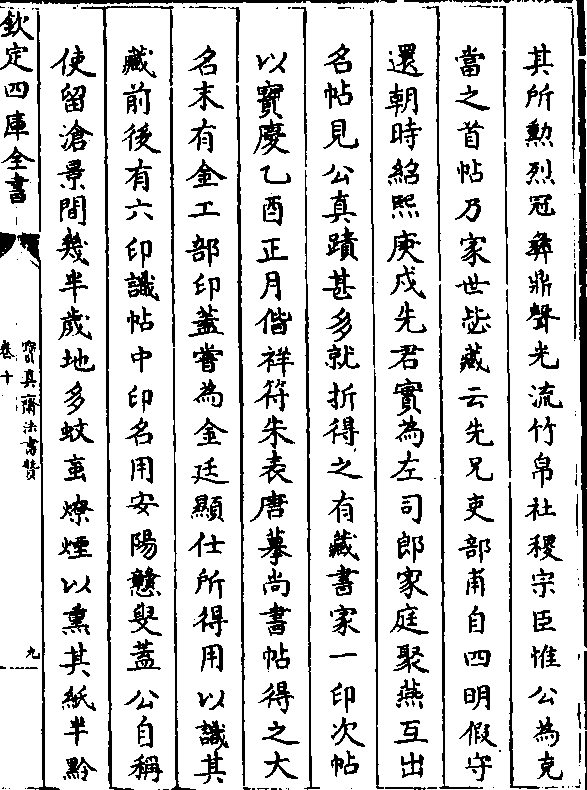 其所勲烈冠彝鼎聲光流竹帛社稷宗臣惟公為克
當之首帖乃家世毖藏云先兄吏部甫自四明假守
還朝時紹熙庚戌先君實為左司郎家庭聚燕互出
名帖見公真蹟甚多就折得之有藏書家一印次帖
以寳慶乙酉正月偕祥符朱表唐摹尚書帖得之大
名末有金工部印蓋嘗為金廷顯仕所得用以識其
藏前後有六印識帖中印名用安陽戇叟蓋公自稱
使留滄景間幾半歲地多蚊䖟燎煙以熏其紙半黔
欽定四庫全書
寳真齋法書贊
卷十
九